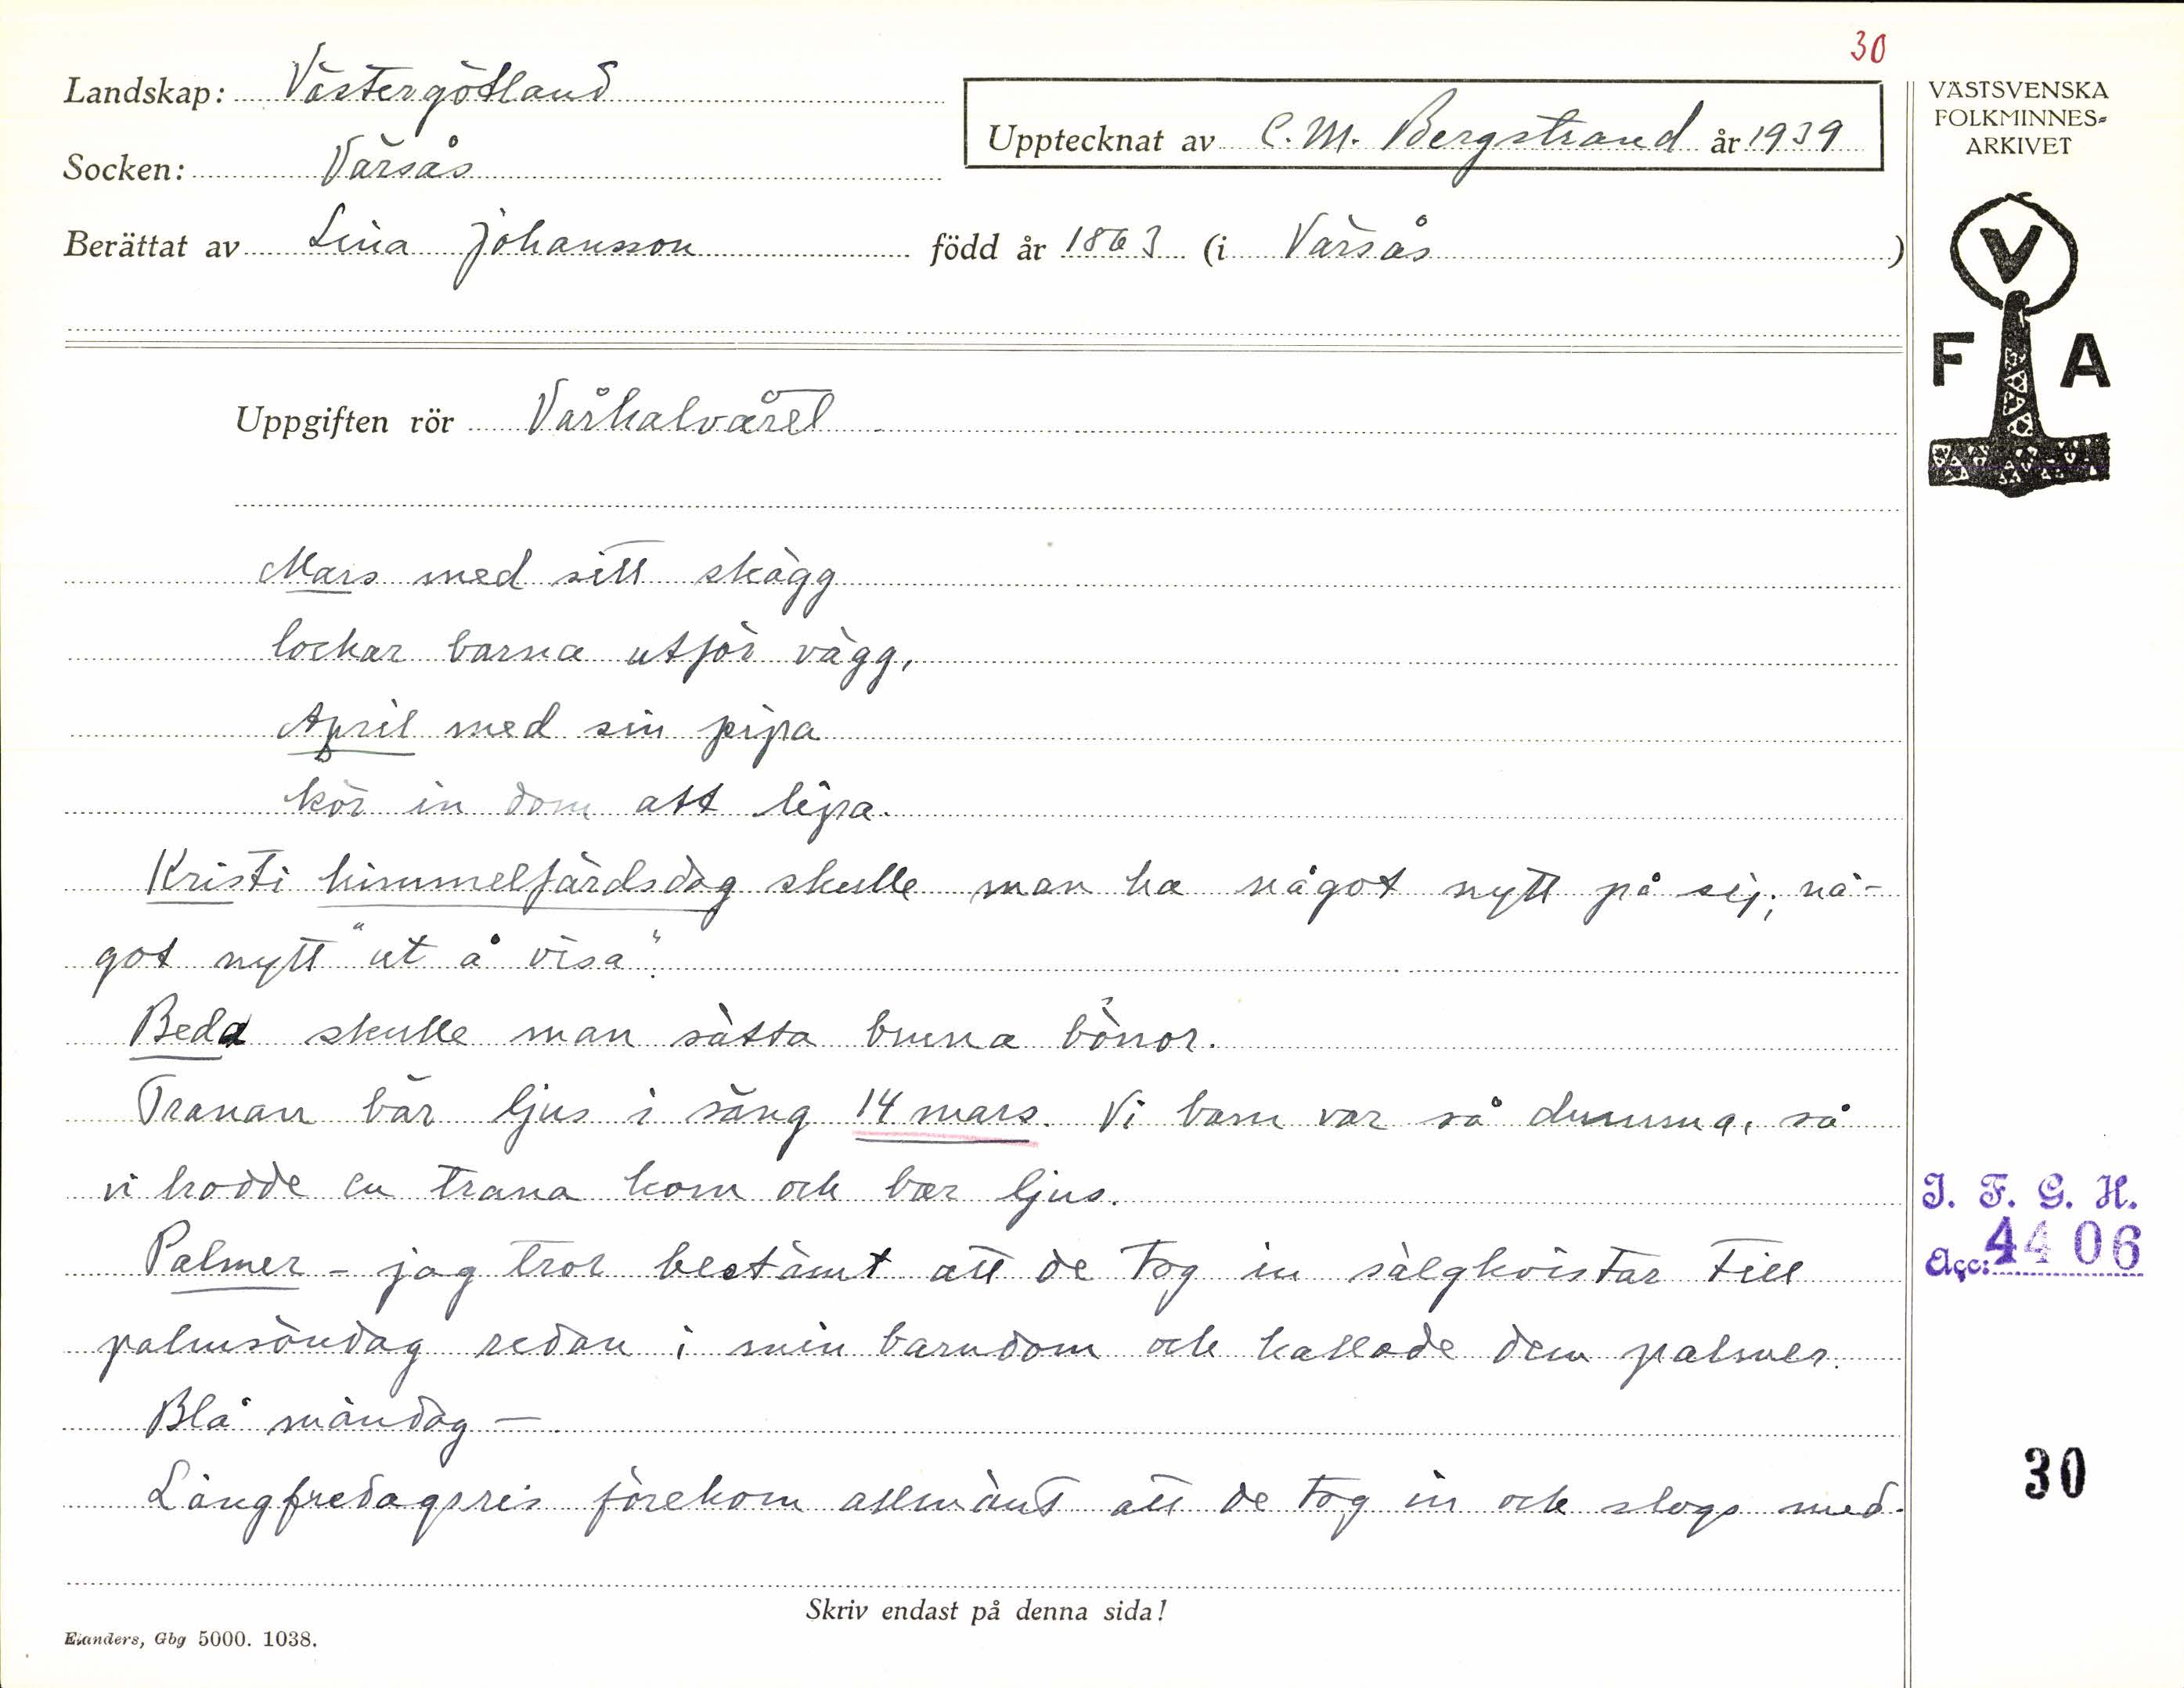 30
Landskap: Västergötland
Upptecknat av C. M. Bergstrand år 1939
Socken: Värsås
Berättat av Lina Johansson född år 1863 (i Värsås)
VÄSTSVENSKA
FOLKMINNES=
ARKIVET
V
F A
Uppgiften rör Vårhalvåret
Mars med sitt skägg
lockar barna utför vägg,
April med sin pipa
kör in dom att lipa.
Kristi himmelfärdsdag skulle man ha något nytt på sig; nå-
got nytt "ut å visa".
Beda skulle man sätta bruna bönor.
Tranan bär ljus i säng 14 mars. Vi barn var så dumma, så
vi trodde en trana kom och bar ljus.
Palmer - jag tror bestämt att de tog in sälgkvistar till
palmsöndag redan i min barndom och kallade dem palmer.
Blå måndag —
Långfredagsris förekom allmänt att de tog in och slogs med.
I. F. G. H.
Acc: 4406
30
Skriv endast på denna sida!
Elanders, Gbg 5000. 1038.